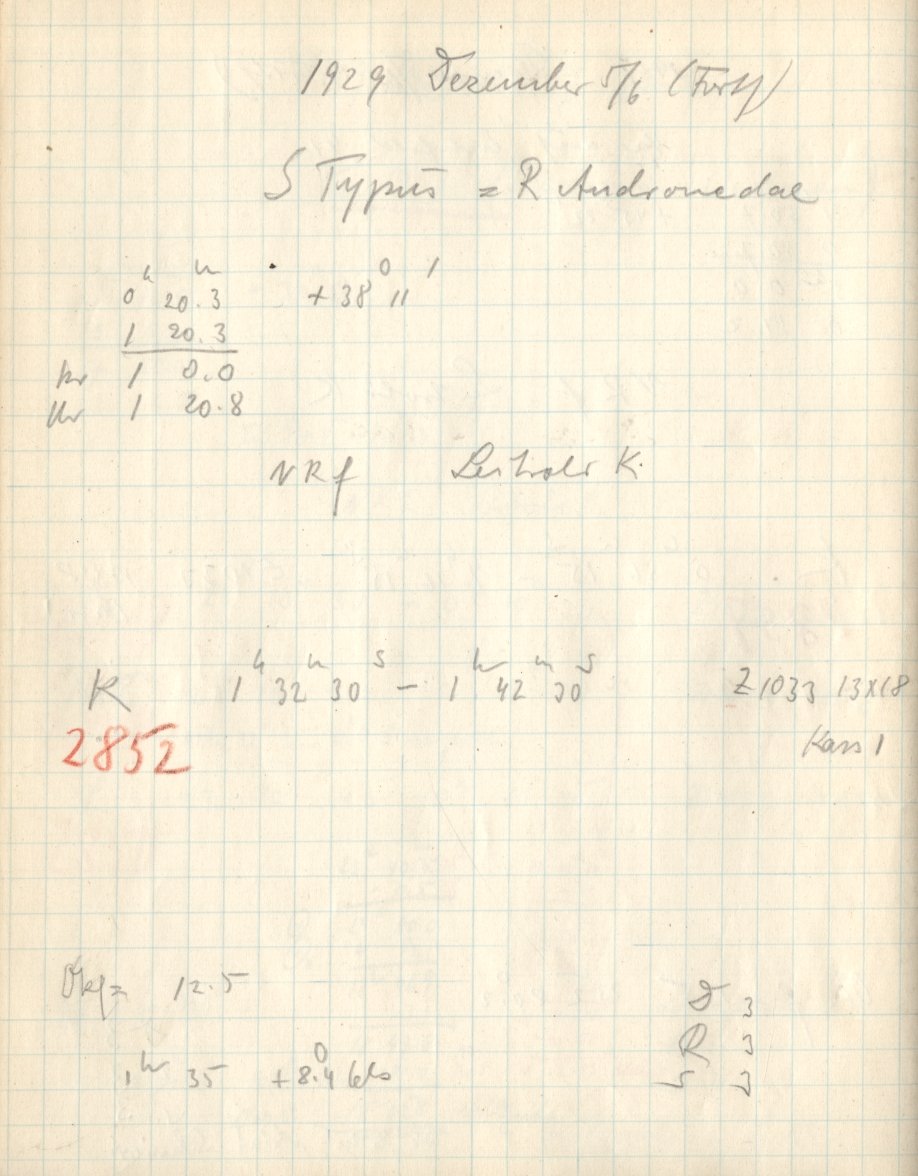 1929 Dezember 5/6 (Forts)
S Typus = R Andromedae
0h 20m.3 +38° 11'
1 20.3
1 0.0
Uhr 1 20.8
NRf Leitrohr K.
K 1h 32m 30s – 1h 42m 30s Z1033 13x18
2852 Kass 1
Okf= 12.5
D 3
R 3
1h 35 +8.°4 Cels
S 3